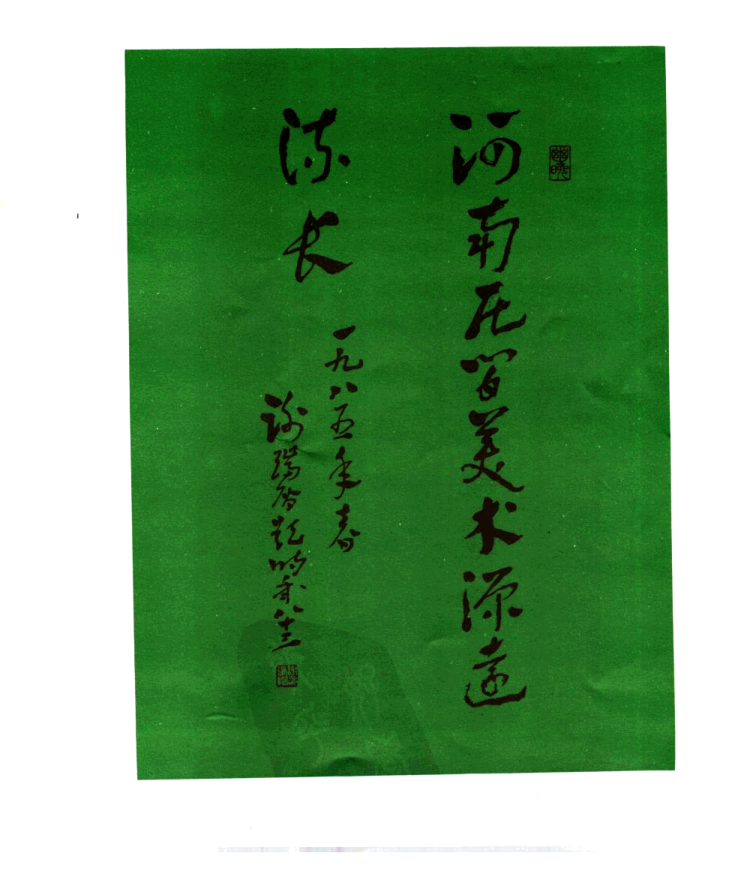 河南民间美术源远
流长
一九八五年春
谢瑞阶题时年